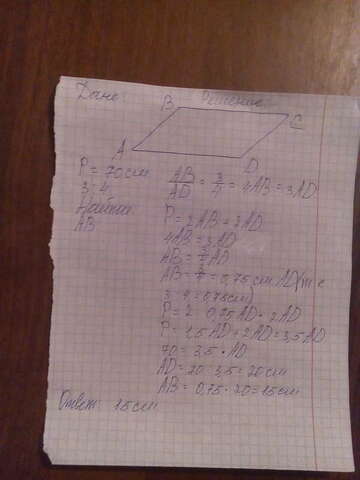 Дано: Решение:
B
C
A
D
P = 70 см
3:4
Найти:
AB
AB/AD = 3/4 = 4AB = 3AD
P = 2AB + 2AD
4AB = 3AD
AB = 3/4 AD
AB = 3/4 = 0,75 см AD (т.к
3:4 = 0,75 см)
P = 2 · 0,75AD · 2AD
P = 1,5AD + 2AD = 3,5AD
70 = 3,5 · AD
AD = 70 : 3,5 = 20 см
AB = 0,75 · 20 = 15 см
Ответ: 15 см